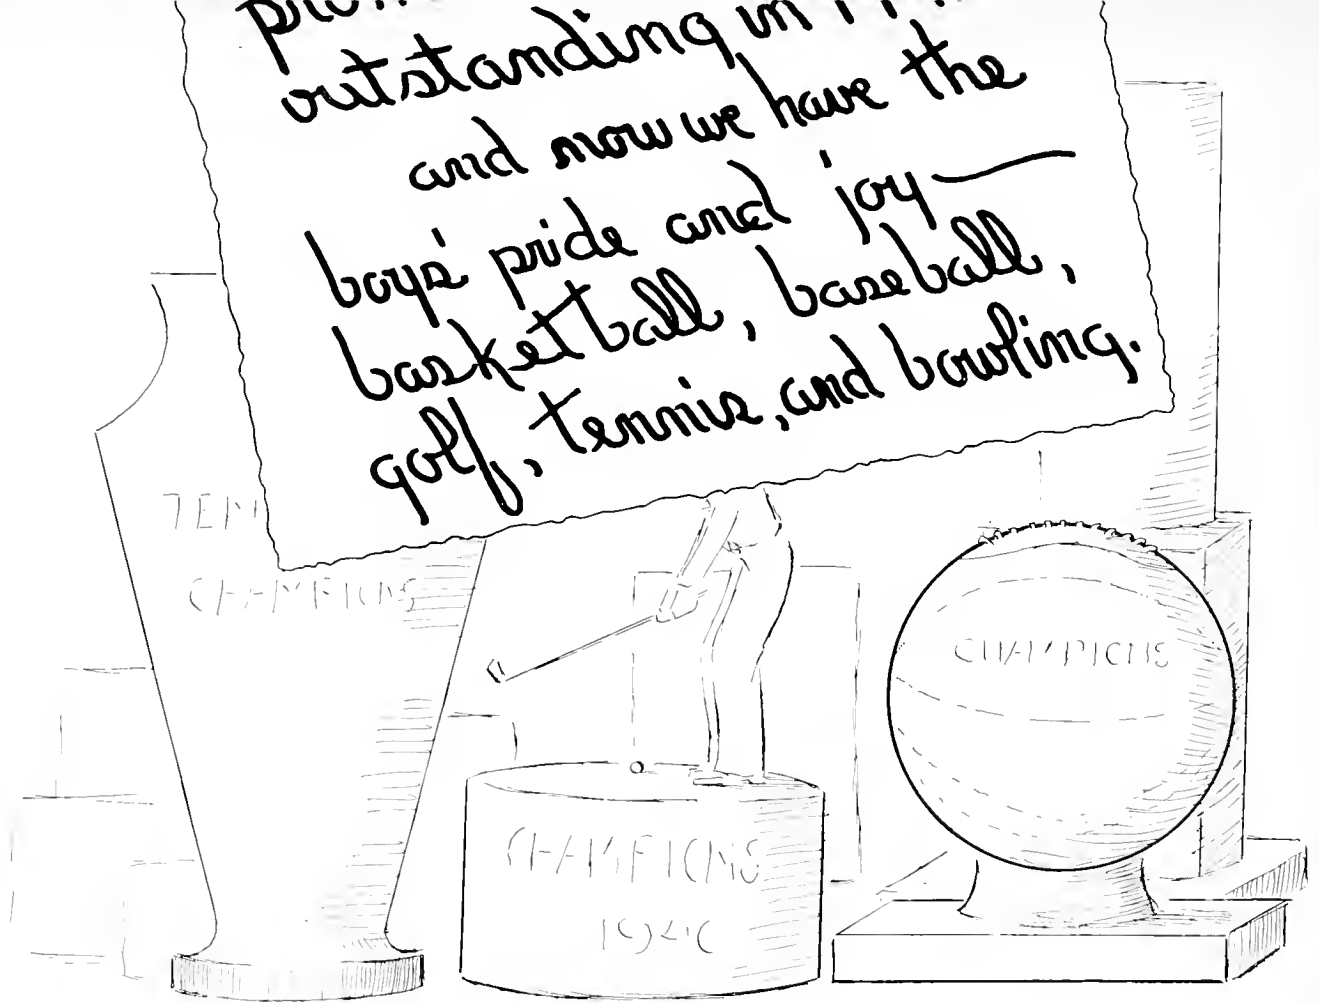 outstanding in
and now we have the
boys' pride and joy —
basketball, baseball,
golf, tennis, and bowling.
CHAMPIONS
CHAMPIONS
CHAMPIONS
1940